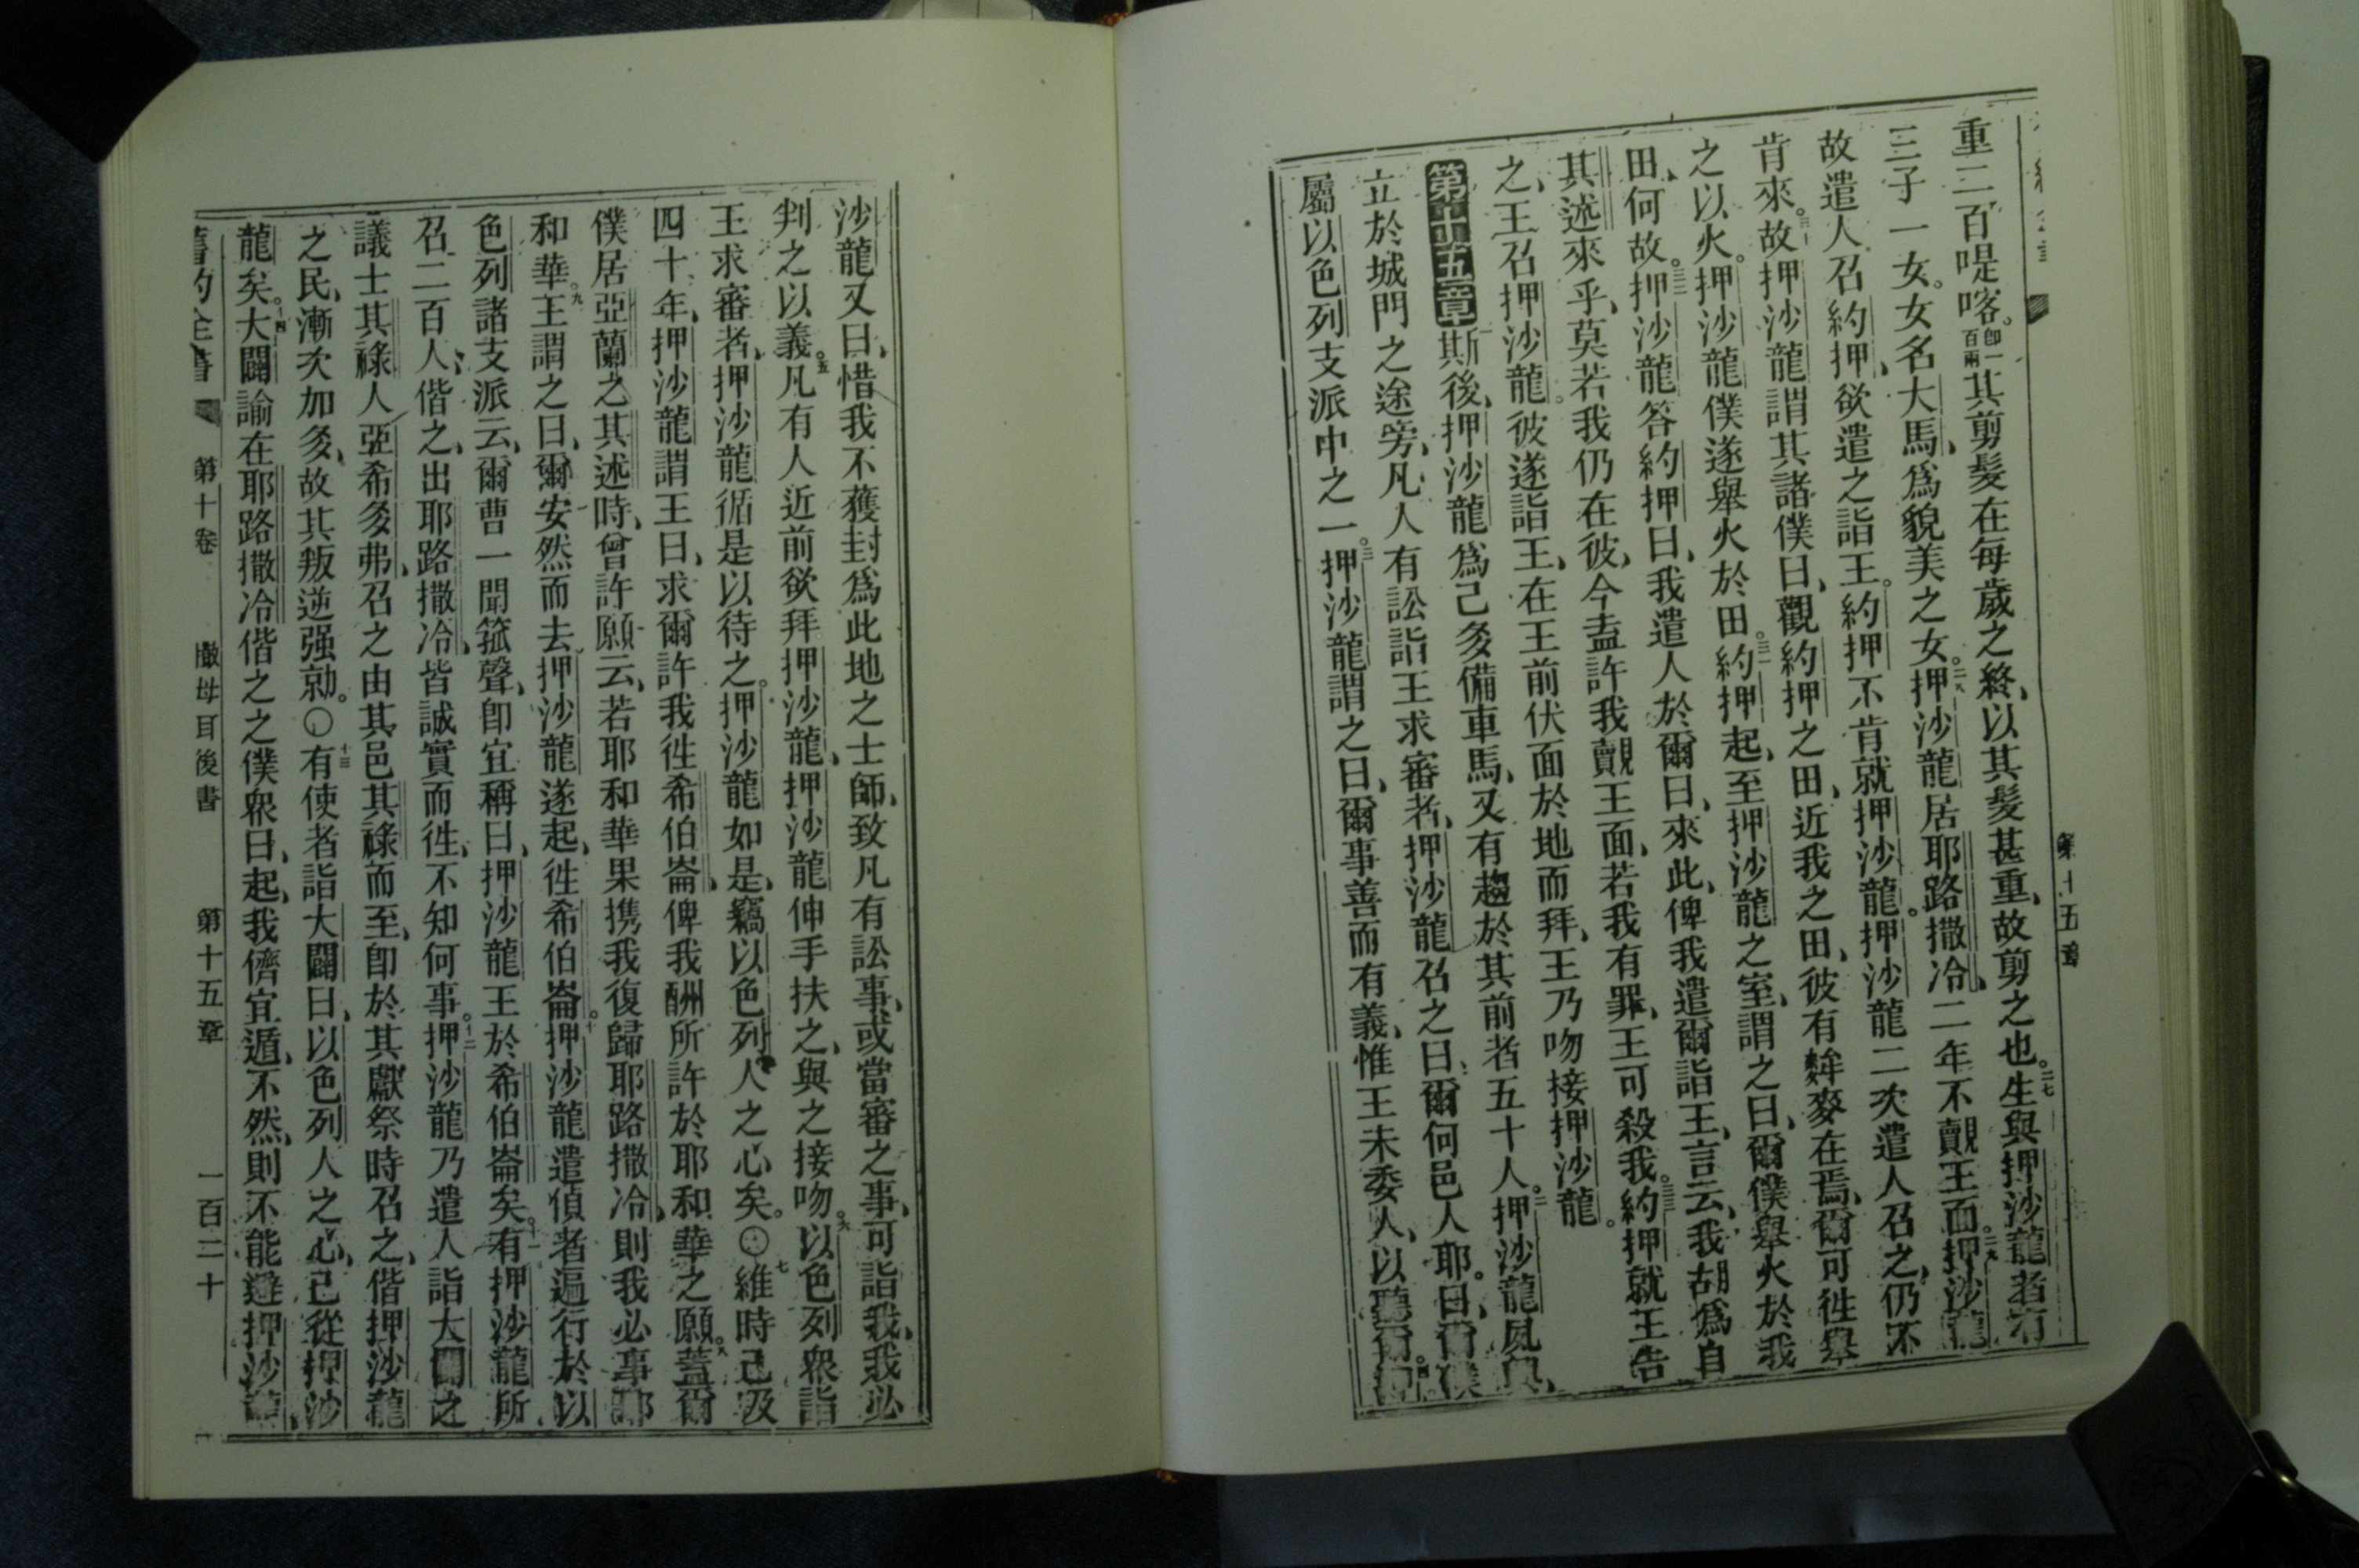 第十五章
重二百㖷喀。卽一百兩其剪髮在每歲之終、以其髮甚重、故剪之也。二七生與押沙龍者有
三子一女。女名大馬、爲貌美之女。二八押沙龍居耶路撒冷、二年不覿王面。二九押沙龍
故遣人召約押、欲遣之詣王。約押不肯就押沙龍。押沙龍二次遣人召之、仍不
肯來。三十故押沙龍謂其諸僕曰、觀約押之田、近我之田、彼有麰麥在焉、爾可徃舉
之以火。押沙龍僕遂舉火於田。三一約押起、至押沙龍之室、謂之曰、爾僕舉火於我
田、何故。三二押沙龍答約押曰、我遣人於爾曰、來此、俾我遣爾詣王、言云、我胡爲自
其述來乎、莫若我仍在彼、今盍許我覿王面、若我有罪、王可殺我。三三約押就王告
之、王召押沙龍。彼遂詣王、在王前伏面於地而拜、王乃吻接押沙龍。
第十五章一斯後、押沙龍爲己多備車馬、又有趨於其前者五十人。二押沙龍夙興、
立於城門之途旁、凡人有訟詣王求審者、押沙龍召之曰、爾何邑人耶。曰、爾僕
屬以色列支派中之一。三押沙龍謂之曰、爾事善而有義、惟王未委人、以聽爾。四押
沙龍又曰、惜我不獲封爲此地之士師、致凡有訟事、或當審之事、可詣我、我必
判之以義。五凡有人近前欲拜押沙龍、押沙龍伸手扶之、與之接吻。六以色列衆詣
王求審者、押沙龍循是以待之。押沙龍如是、竊以色列人之心矣。〇七維時已及
四十年、押沙龍謂王曰、求爾許我徃希伯崙、俾我酬所許於耶和華之願。八蓋爾
僕居亞蘭之其述時、曾許願云、若耶和華果携我復歸耶路撒冷、則我必事耶
和華。九王謂之曰、爾安然而去、押沙龍遂起、徃希伯崙。十押沙龍遣偵者遍行於以
色列諸支派云、爾曹一聞箛聲、卽宜稱曰、押沙龍王於希伯崙矣。十一有押沙龍所
召二百人、偕之、出耶路撒冷、皆誠實而徃、不知何事。十二押沙龍乃遣人詣大闢之
議士其祿人亞希多弗、召之由其邑其祿而至、卽於其獻祭時召之、偕押沙龍
之民、漸次加多、故其叛逆强勍。〇十三有使者詣大闢曰、以色列人之心、已從押沙
龍矣。十四大闢諭在耶路撒冷偕之之僕衆曰、起、我儕宜遁、不然、則不能避押沙龍、
舊約全書 第十卷 撒母耳後書 第十五章 一百二十